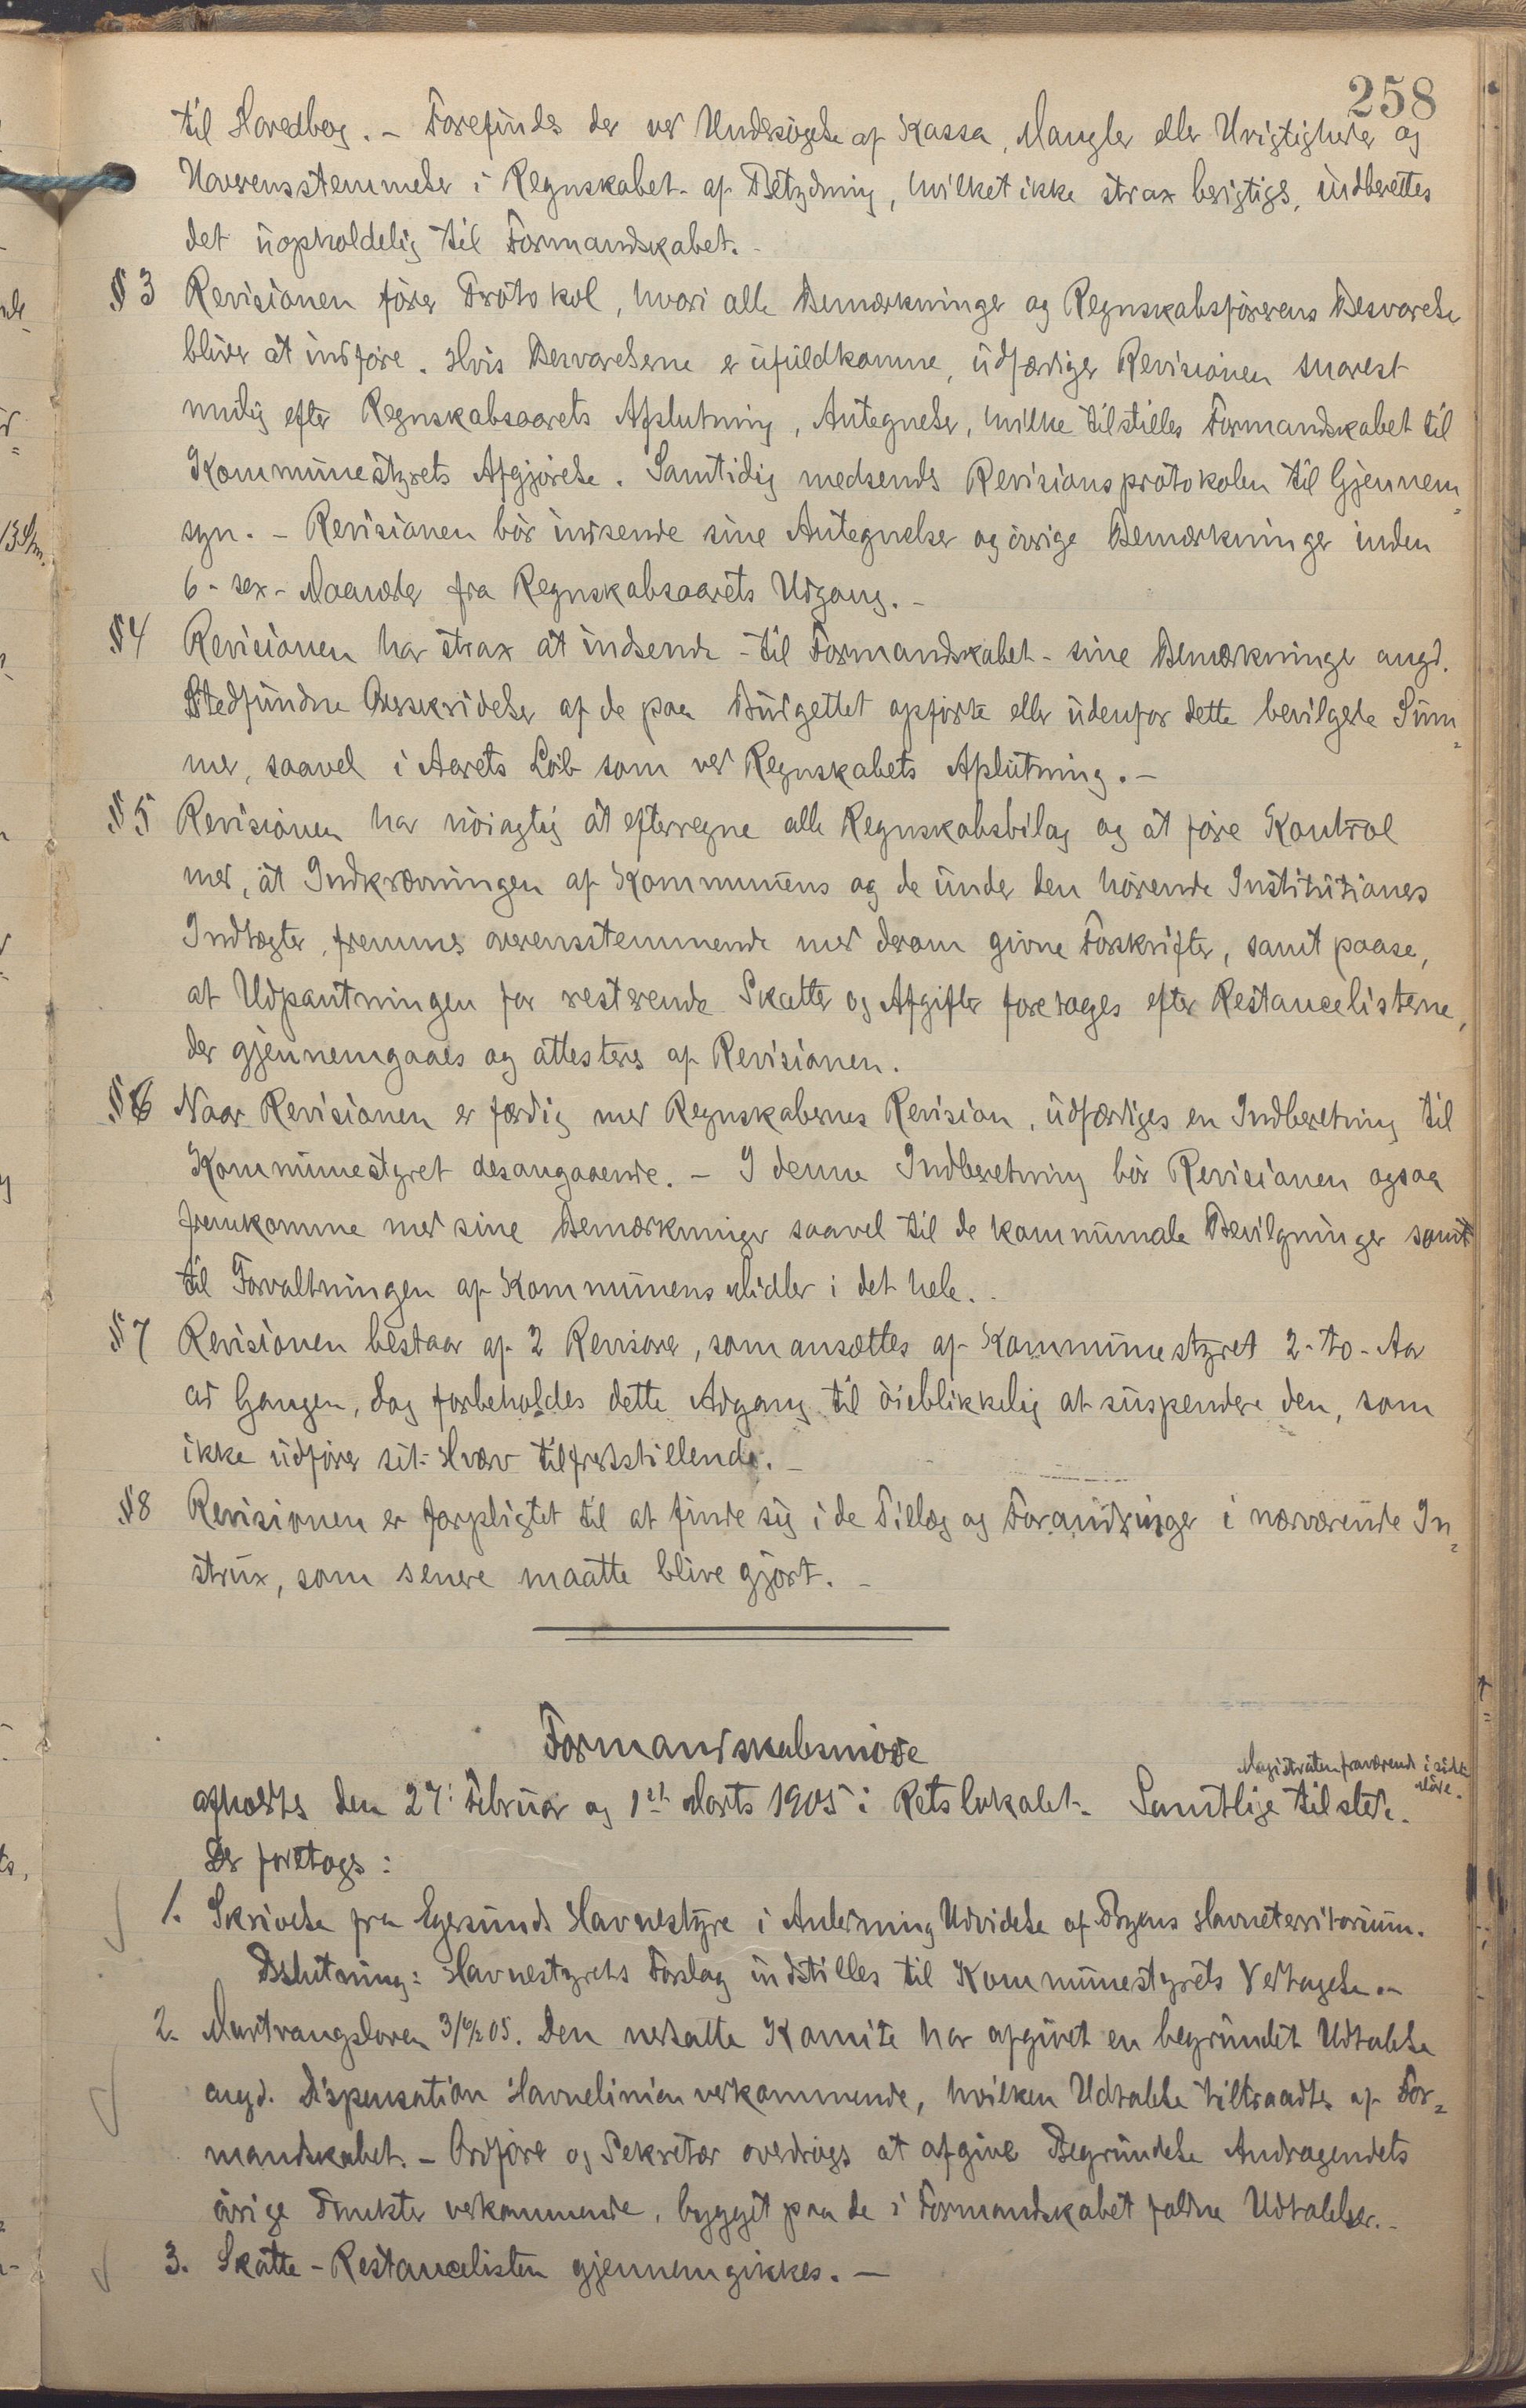 258
til Hovedbog. – Forefindes der ved Undersøgelse af Kassa, Mangler eller Urigtigheder og
Uoverensstemmelser i Regnskabet af Betydning, hvilket ikke strax berigtiges, indberettes
det uopholdelig til Formandskabet. –
§ 3 Revisionen fører Protokol, hvori alle Bemærkninger og Regnskabsførerens Besvarelse
bliver at indføre. Hvis Besvarelserne er ufuldkomne, udfærdiger Revisionen snarest
mulig efter Regnskabsaarets Afslutning, Antegnelser, hvilke tilstilles Formandskabet til
Kommunestyrets Afgjørelse. Samtidig medsendes Revisionsprotokolen til Gjennem=
syn. – Revisionen bør indsende sine Antegnelser og øvrige Bemærkninger inden
6 - sex - Maaneder fra Regnskabsaarets Udgang. –
§ 4 Revisionen har strax at indsende - til Formandskabet - sine Bemærkninger angd.
Stedfundne Overskridelser af de paa Budgettet opførte eller udenfor dette bevilgede Sum=
mer, saavel i Aarets Løb som ved Regnskabets Afslutning. –
§ 5 Revisionen har nøiagtig at efterregne alle Regnskabsbilag og at føre Kontrol
med, at Indkrævningen af Kommunens og de under den hørende Institutioners
Indtægter, fremmes overensstemmende med derom givne Forskrifter, samt paase,
at Udpantningen for resterende Skatter og Afgifter foretages efter Restancelisterne,
der gjennemgaaes og attesteres af Revisionen.
§ 6 Naar Revisionen er færdig med Regnskabernes Revision, udfærdiges en Indberetning til
Kommunestyret desangaaende. – I denne Indberetning bør Revisionen ogsaa
fremkomme med sine Bemærkninger saavel til de kommunale Bevilgninger samt
til Forvaltningen af Kommunens Midler i det hele. –
§ 7 Revisionen bestaar af 2 Revisorer, som ansættes af Kommunestyret 2 - to - Aar
ad Gangen, dog forbeholdes dette Adgang til øieblikkelig at suspendere den, som
ikke udfører sit Hverv tilfredsstillende. –
§ 8 Revisionen er forpligtet til at finde sig i de Tillæg og Forandringer i nærværende In=
strux, som senere maatte blive gjort. –
Formandskabsmøde
Magistraten fraværende i sidste
Møde.
afholdtes den 27: Februar og 1st Marts 1905 i Retslokalet. Samtlige tilstede.
Der foretoges:
1. Skrivelse fra Egersunds Havnestyre i Anledning Udvidelse af Byens Havneterritorium.
Beslutning: Havnestyrets Forslag indstilles til Kommunestyrets Vedtagelse. –
2. Murtvangsloven 05. Den nedsatte Komite har afgivet en begrundet Udtalelse
angd. Dispensation Havnelinien vedkommende, hvilken Udtalelse tiltraadtes af For=
mandskabet. – Ordfører og Sekretær overdroges at afgive Begrundelse Andragendets
øvrige Punkter vedkommende, bygget paa de i Formandskabet faldne Udtalelser. –
3. Skatte-Restancelisten gjennemgikkes. –